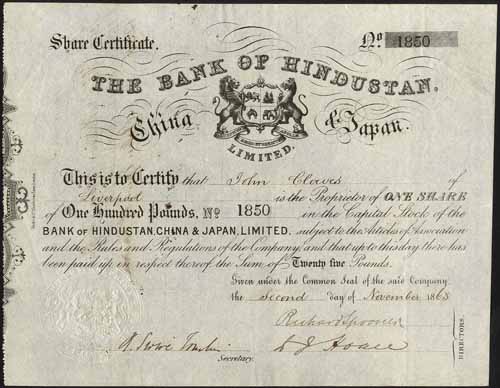 Share Certificate.
No 1850
THE BANK OF HINDUSTAN,
China & Japan.
LIMITED.
This is to Certify that John Clowes of
Liverpool is the Proprietor of ONE SHARE
of One Hundred Pounds, No 1850 in the Capital Stock of the
BANK OF HINDUSTAN, CHINA & JAPAN, LIMITED. subject to the Articles of Association
and the Rules and Regulations of the Company and that up to this day there has
been paid up in respect thereof, the Sum of Twenty five Pounds.
Given under the Common Seal of the said Company
the Second day of November 1863
Richard Spooner
Secretary.
DIRECTORS.